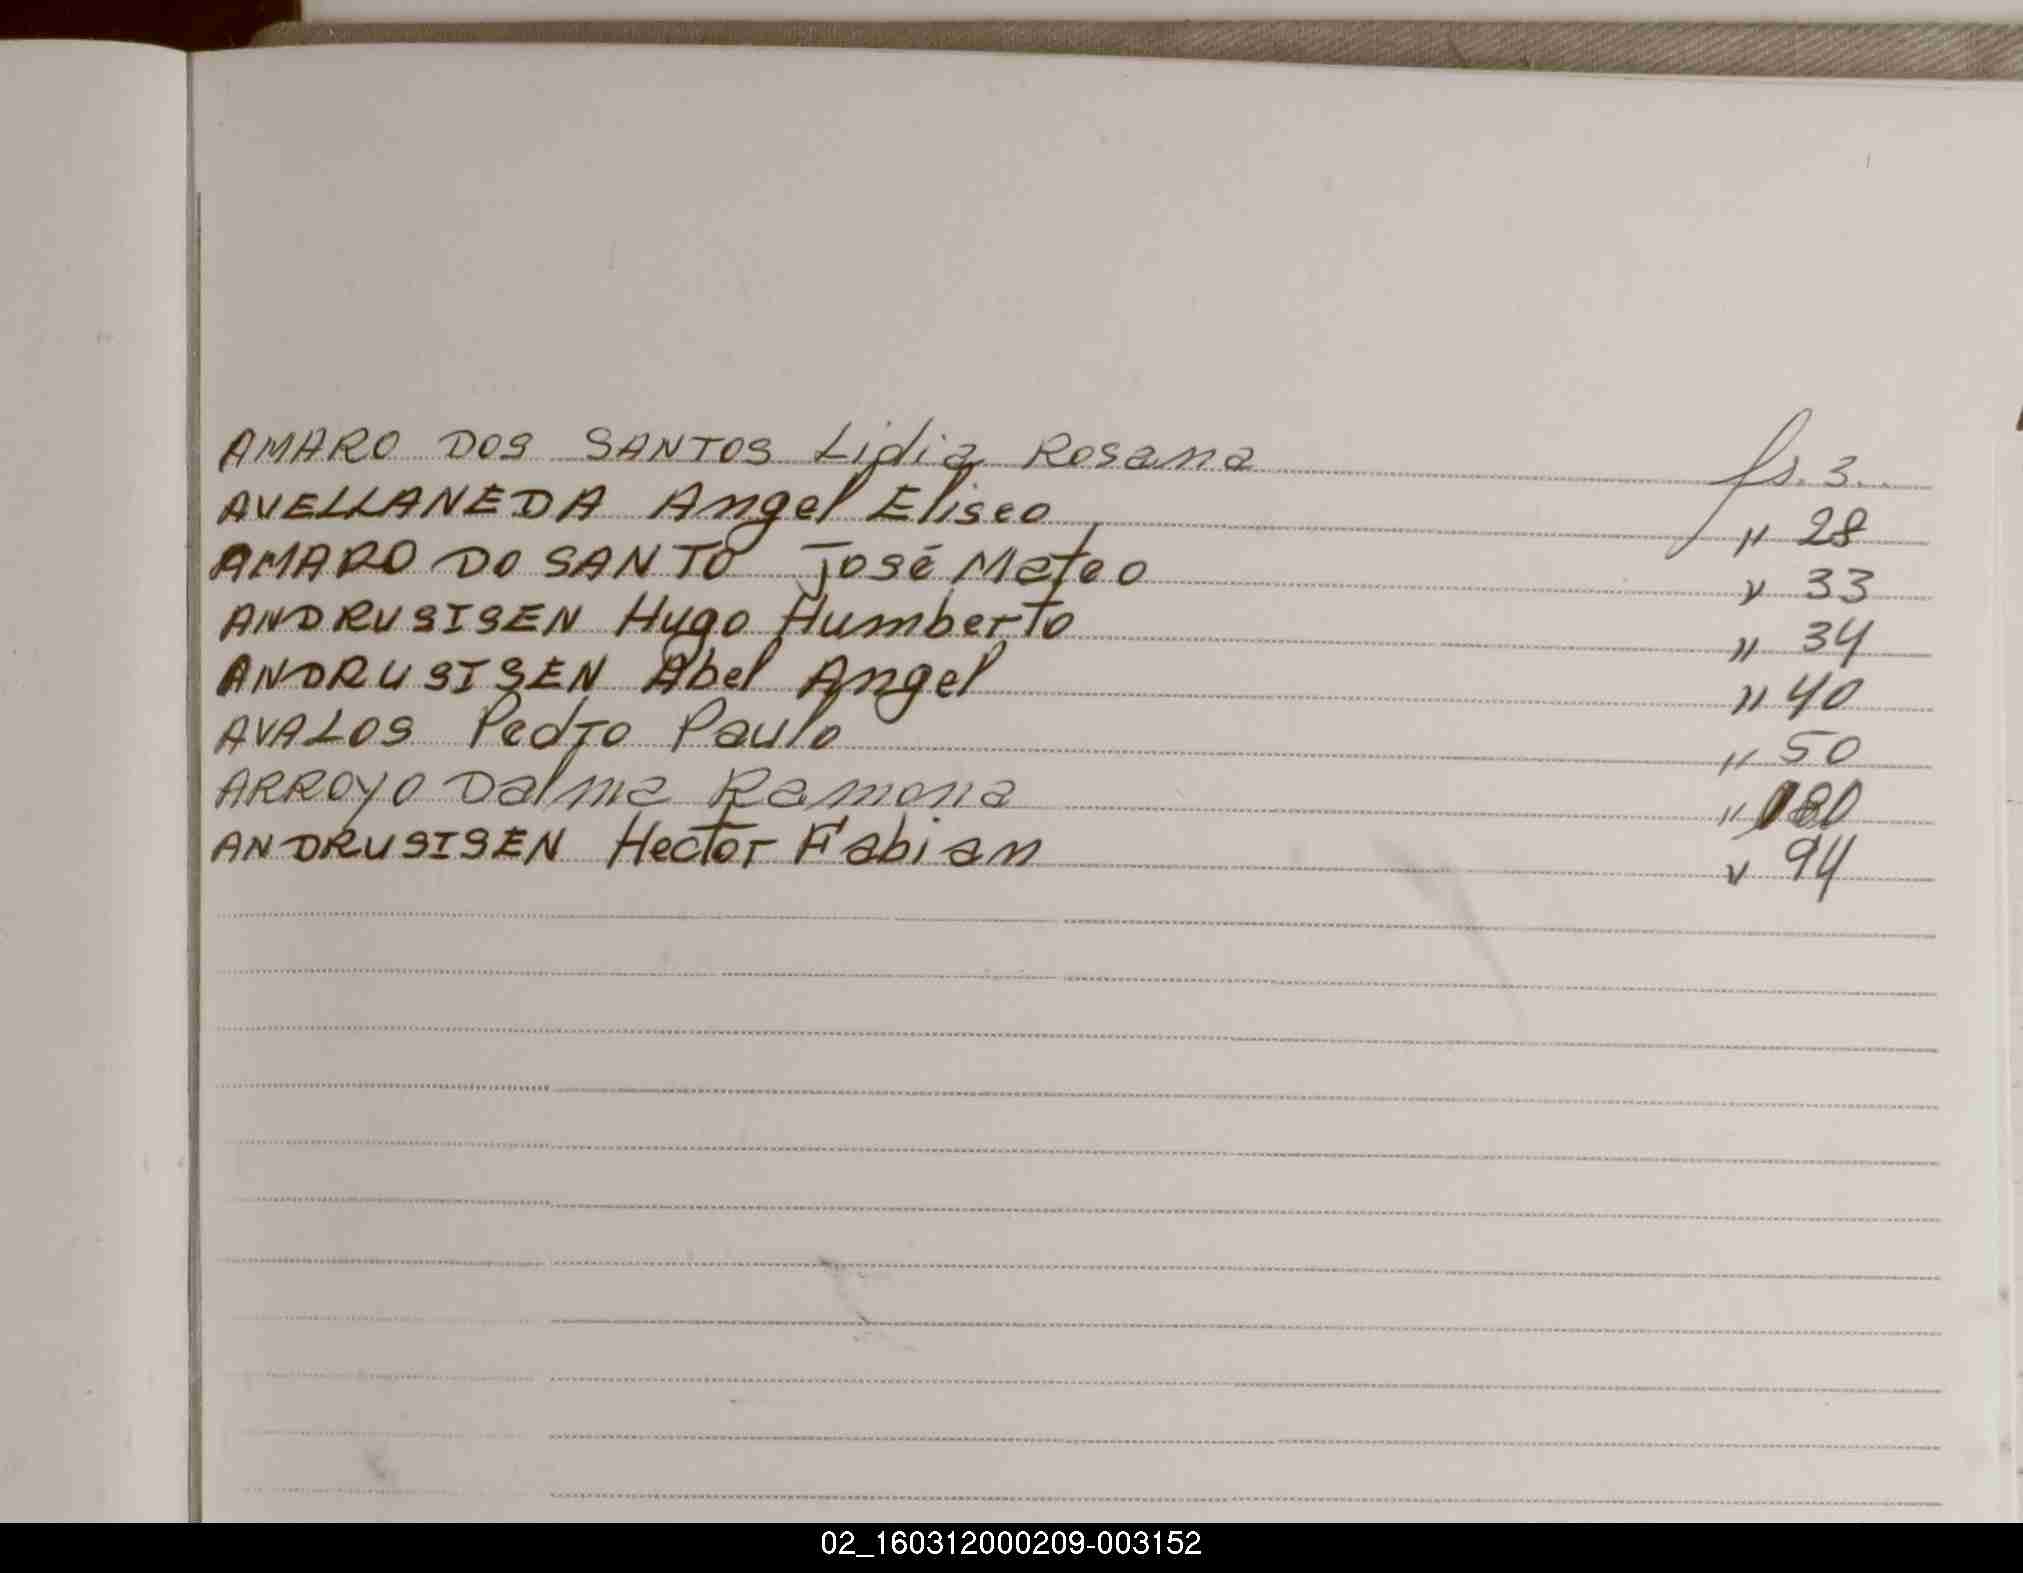 AMARO DOS SANTOS Lidia Rosana fs. 3
AVELLANEDA Angel Eliseo " 28
AMARO DO SANTO José Mateo " 33
ANDRUSISEN Hugo Humberto " 34
ANDRUSISEN Abel Angel " 40
AVALOS Pedro Paulo " 50
ARROYO Dalma Ramona " 80
ANDRUSISEN Hector Fabian " 94
02_160312000209-003152